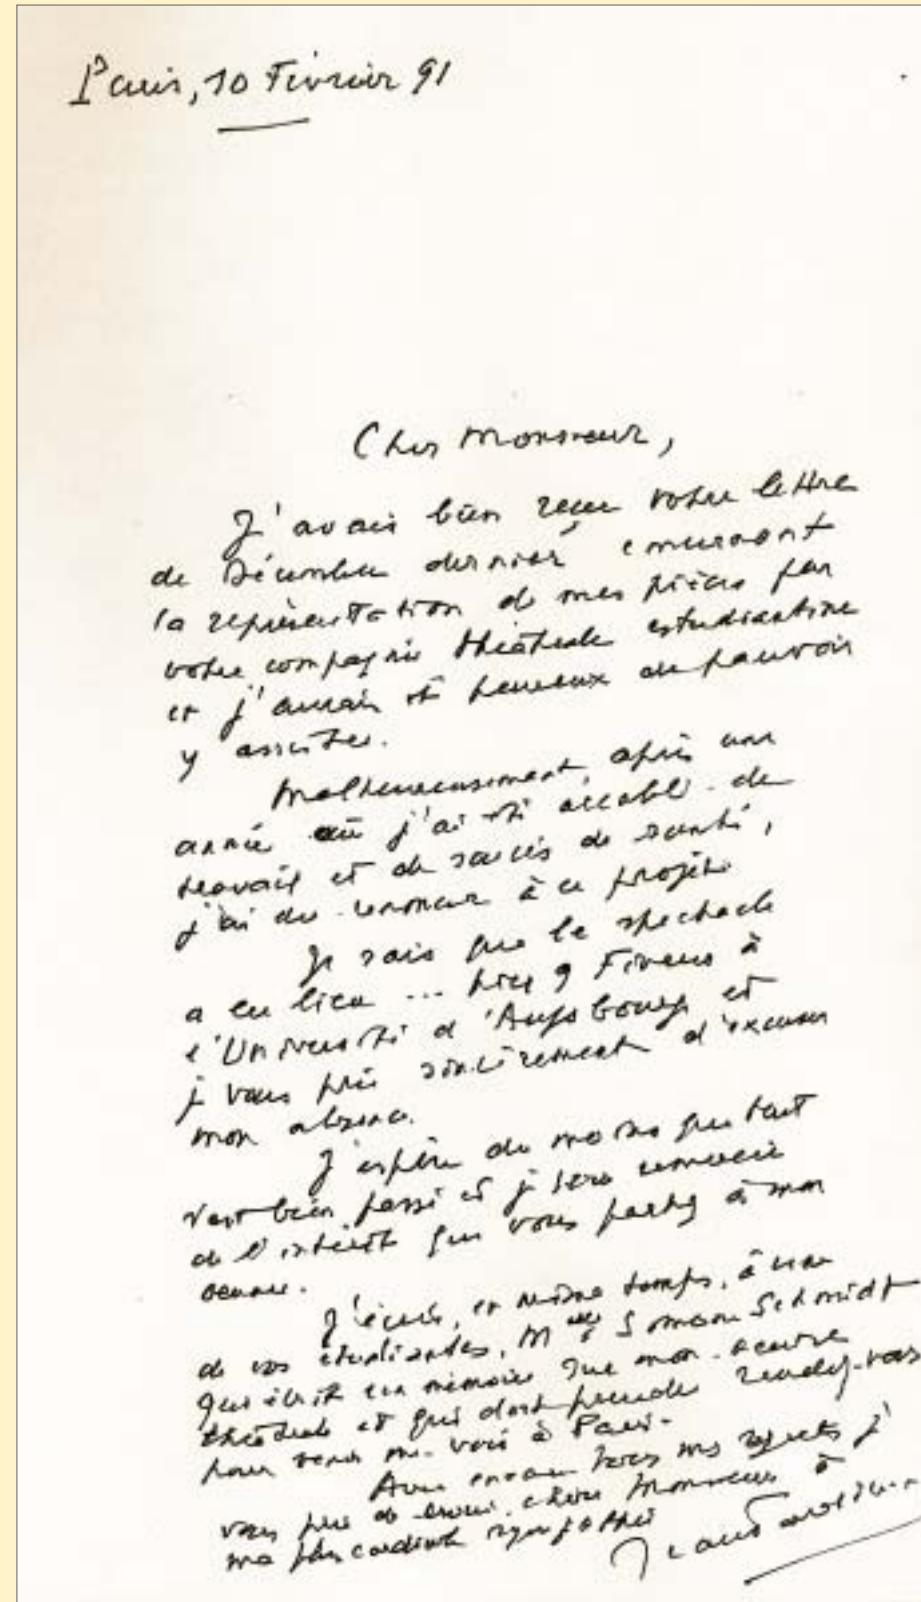 Paris, 10 Février 91
Cher Monsieur,
J'avais bien reçu votre lettre
de Décembre dernier, concernant
la représentation de mes pièces par
votre compagnie théâtrale estudiantine
et j'aurais été heureux de pouvoir
y assister.
Malheureusement, après une
année où j'ai été accablé de
travail et de soucis de santé,
j'ai dû renoncer à ce projet.
Je sais que le spectacle
a eu lieu ... hier 9 Février à
l'Université d'Augsbourg et
je vous prie sincèrement d'excuser
mon absence.
J'espère du moins que tout
s'est bien passé et je vous remercie
de l'intérêt que vous portez à mon
œuvre.
J'écris, en même temps, à une
de vos étudiantes, Melle Simone Schmidt
qui écrit un mémoire sur mon œuvre
théâtrale et qui doit prendre rendez-vous
pour venir me voir à Paris.
Avec encore tous mes regrets je
vous prie de croire, cher Monsieur à
ma plus cordiale sympathie
Jean Tardieu